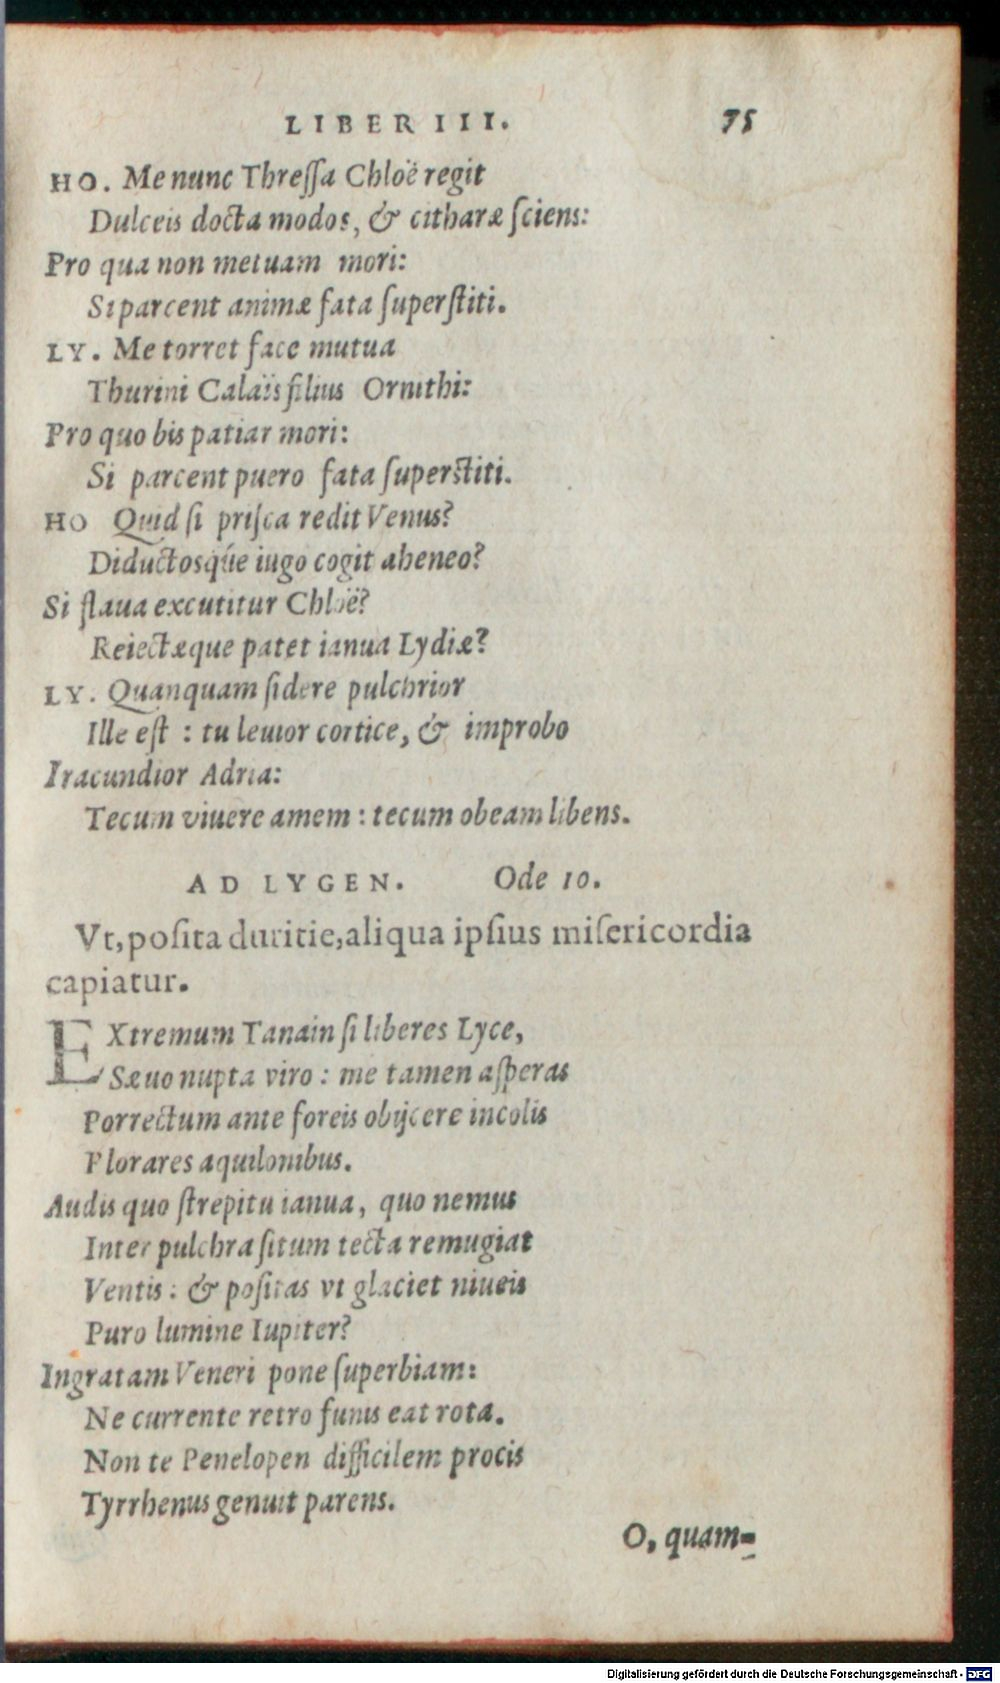 LIBER III. 75
HO. Me nunc Threſſa Chloë regit
Dulceis docta modos, & citharæ ſciens:
Pro qua non metuam mori:
Si parcent animæ fata ſuperſtiti.
LY. Me torret face mutua
Thurini Calaïs filius Ornithi:
Pro quo bis patiar mori:
Si parcent puero fata ſuperſtiti.
HO Quid ſi priſca redit Venus?
Diductosq́ue iugo cogit aheneo?
Si flaua excutitur Chloë?
Reiectæque patet ianua Lydiæ?
LY. Quanquam ſidere pulchrior
Ille eſt : tu leuior cortice, & improbo
Iracundior Adria:
Tecum viuere amem : tecum obeam libens.
AD LYGEN. Ode 10.
Vt, poſita duritie, aliqua ipſius miſericordia
capiatur.
EXtremum Tanain ſi liberes Lyce,
Sæuo nupta viro : me tamen aſperas
Porrectum ante foreis obijcere incolis
Plorares aquilonibus.
Audis quo ſtrepitu ianua, quo nemus
Inter pulchra ſitum tecta remugiat
Ventis : & poſitas vt glaciet niueis
Puro lumine Iupiter?
Ingratam Veneri pone ſuperbiam:
Ne currente retro funis eat rota.
Non te Penelopen difficilem procis
Tyrrhenus genuit parens.
O, quam-
Digitalisierung gefördert durch die Deutsche Forschungsgemeinschaft - DFG